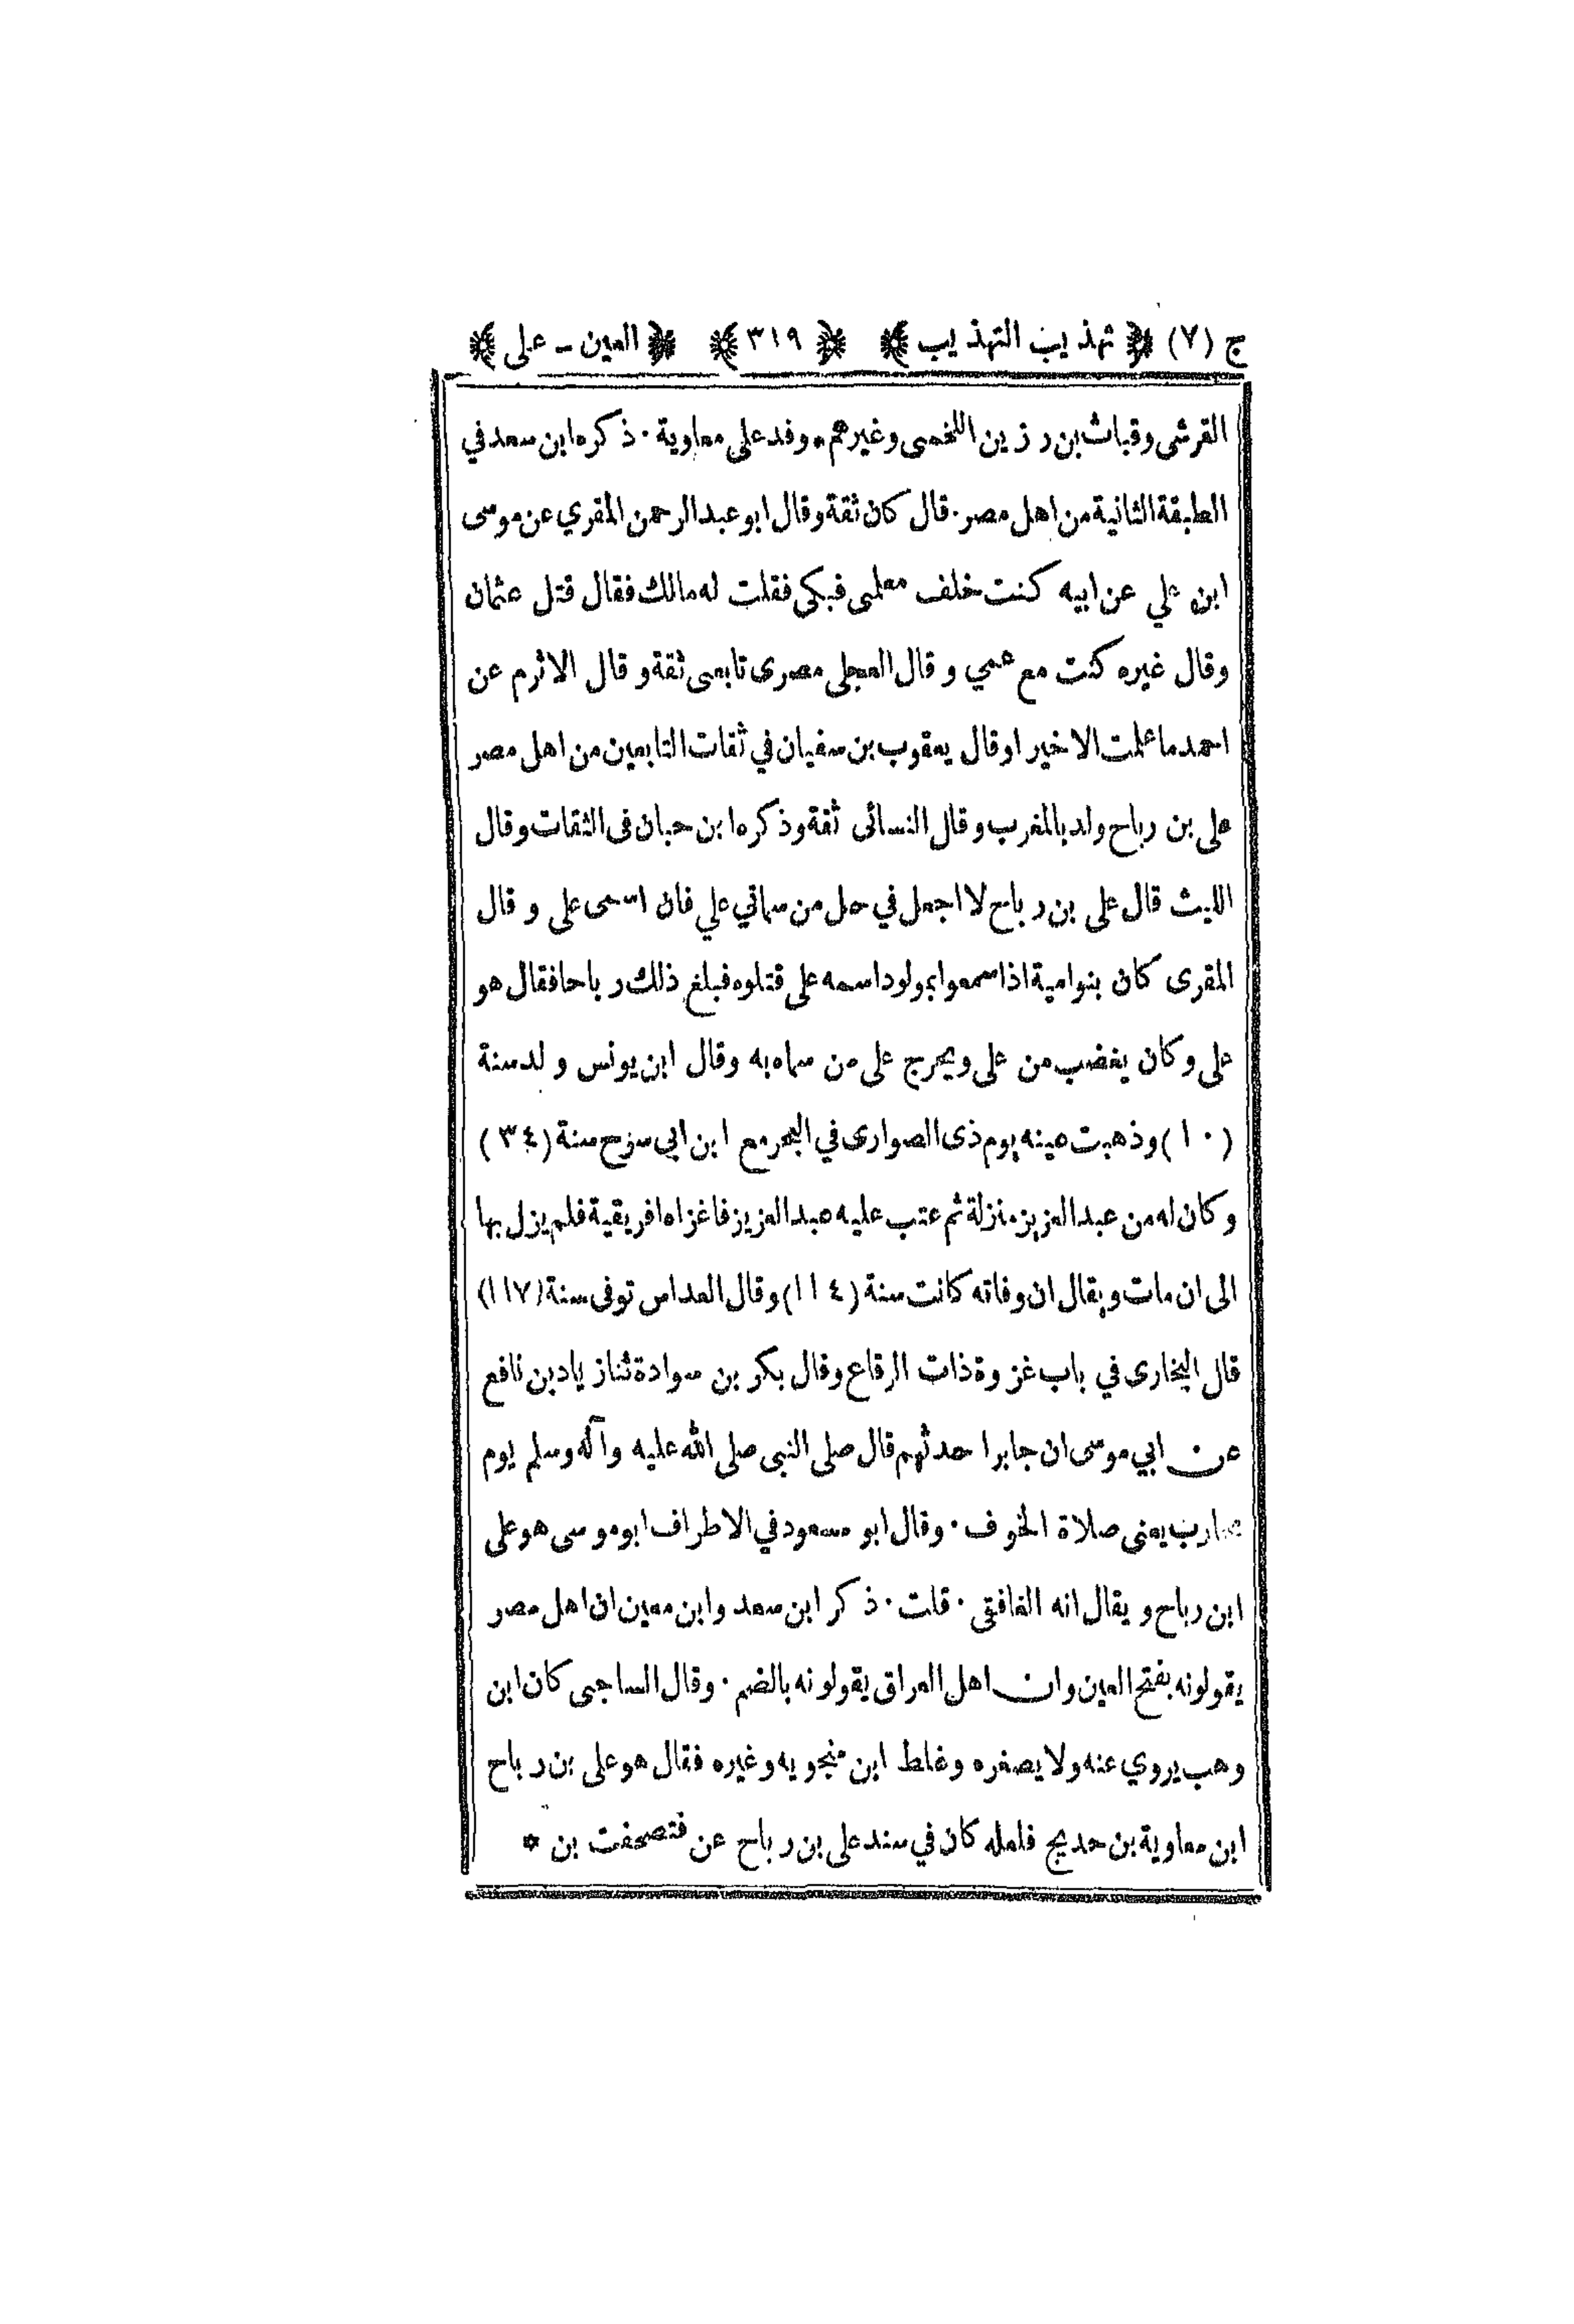 ج (٧) ﴿ تهذيب التهذيب ﴾ ﴿ ٣١٩ ﴾ ﴿ العين ـ على ﴾
القرشى وقباث بن رزين اللخمى وغيرهم٠ وفد على معاوية ٠ ذكره ابن سعد في
الطبقة الثانية من اهل مصر ٠ قال كان ثقة وقال ابو عبد الرحمن المقري عن موسى
ابن علي عن ابيه كنت خلف معلمى فبكى فقلت له مالك فقال قتل عثمان
وقال غيره كنت مع عمي و قال العجلى مصرى تابعى ثقة و قال الاثرم عن
احمد ما علمت الا خيرا وقال يعقوب بن سفيان في ثقات التابعين من اهل مصر
على بن رباح ولد بالمغرب وقال النسائى ثقة وذكره ابن حبان فى الثقات وقال
الليث قال على بن رباح لا اجعل في حل من سماني علي فان اسمى على و قال
المقرى كان بنوامية اذا سمعوا بمولود اسمه على قتلوه فبلغ ذلك رباحا فقال هو
على وكان يغضب من على ويحرج على من سماه به وقال ابن يونس ولد سنة
(١٠) وذهبت عينه يوم ذى الصوارى في البحر مع ابن ابي سرح سنة (٣٤)
وكان له من عبد العزيز منزلة ثم عتب عليه عبد العزيز فاغزاه افريقية فلم يزل بها
الى ان مات ويقال ان وفاته كانت سنة (١١٤) وقال العداس توفى سنة (١١٧)
قال البخارى في باب غزوة ذات الرقاع وقال بكر بن سوادة ثنا زياد بن نافع
عن ابي موسى ان جابرا حدثهم قال صلى النبى صلى الله عليه وآله وسلم يوم
محارب يعنى صلاة الخوف ٠ وقال ابو مسعود في الاطراف ابو موسى هو على
ابن رباح و يقال انه الغافقى ٠ قلت ٠ ذكر ابن سعد وابن معين ان اهل مصر
يقولونه بفتح العين وان اهل العراق يقولونه بالضم ٠ وقال الساجى كان ابن
وهب يروي عنه ولا يصغره وغلط ابن منجويه وغيره فقال هو على بن رباح
ابن معاوية بن حديج فلعله كان في سند على بن رباح عن فتصحفت بن *